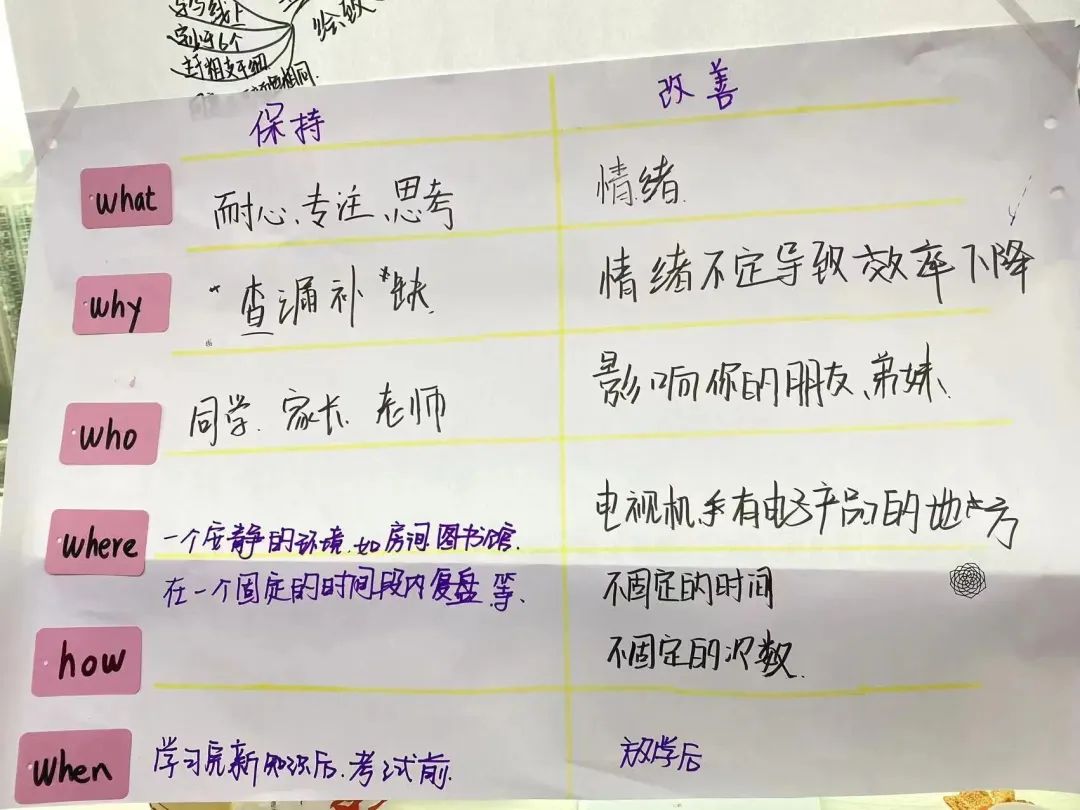 字写线上
字少于6个
保持 改善
what 耐心、专注、思考 情绪.
why *查漏补*缺. 情绪不定导致效率下降
who 同学. 家长. 老师 影响你的朋友、弟妹、
where 一个安静的环境.如房间.图书馆. 电视机等有电子产品的地方
how 在一个固定的时间段内复盘.等. 不固定的时间
不固定的次数.
when 学习完新知识后.考试前. 放学后